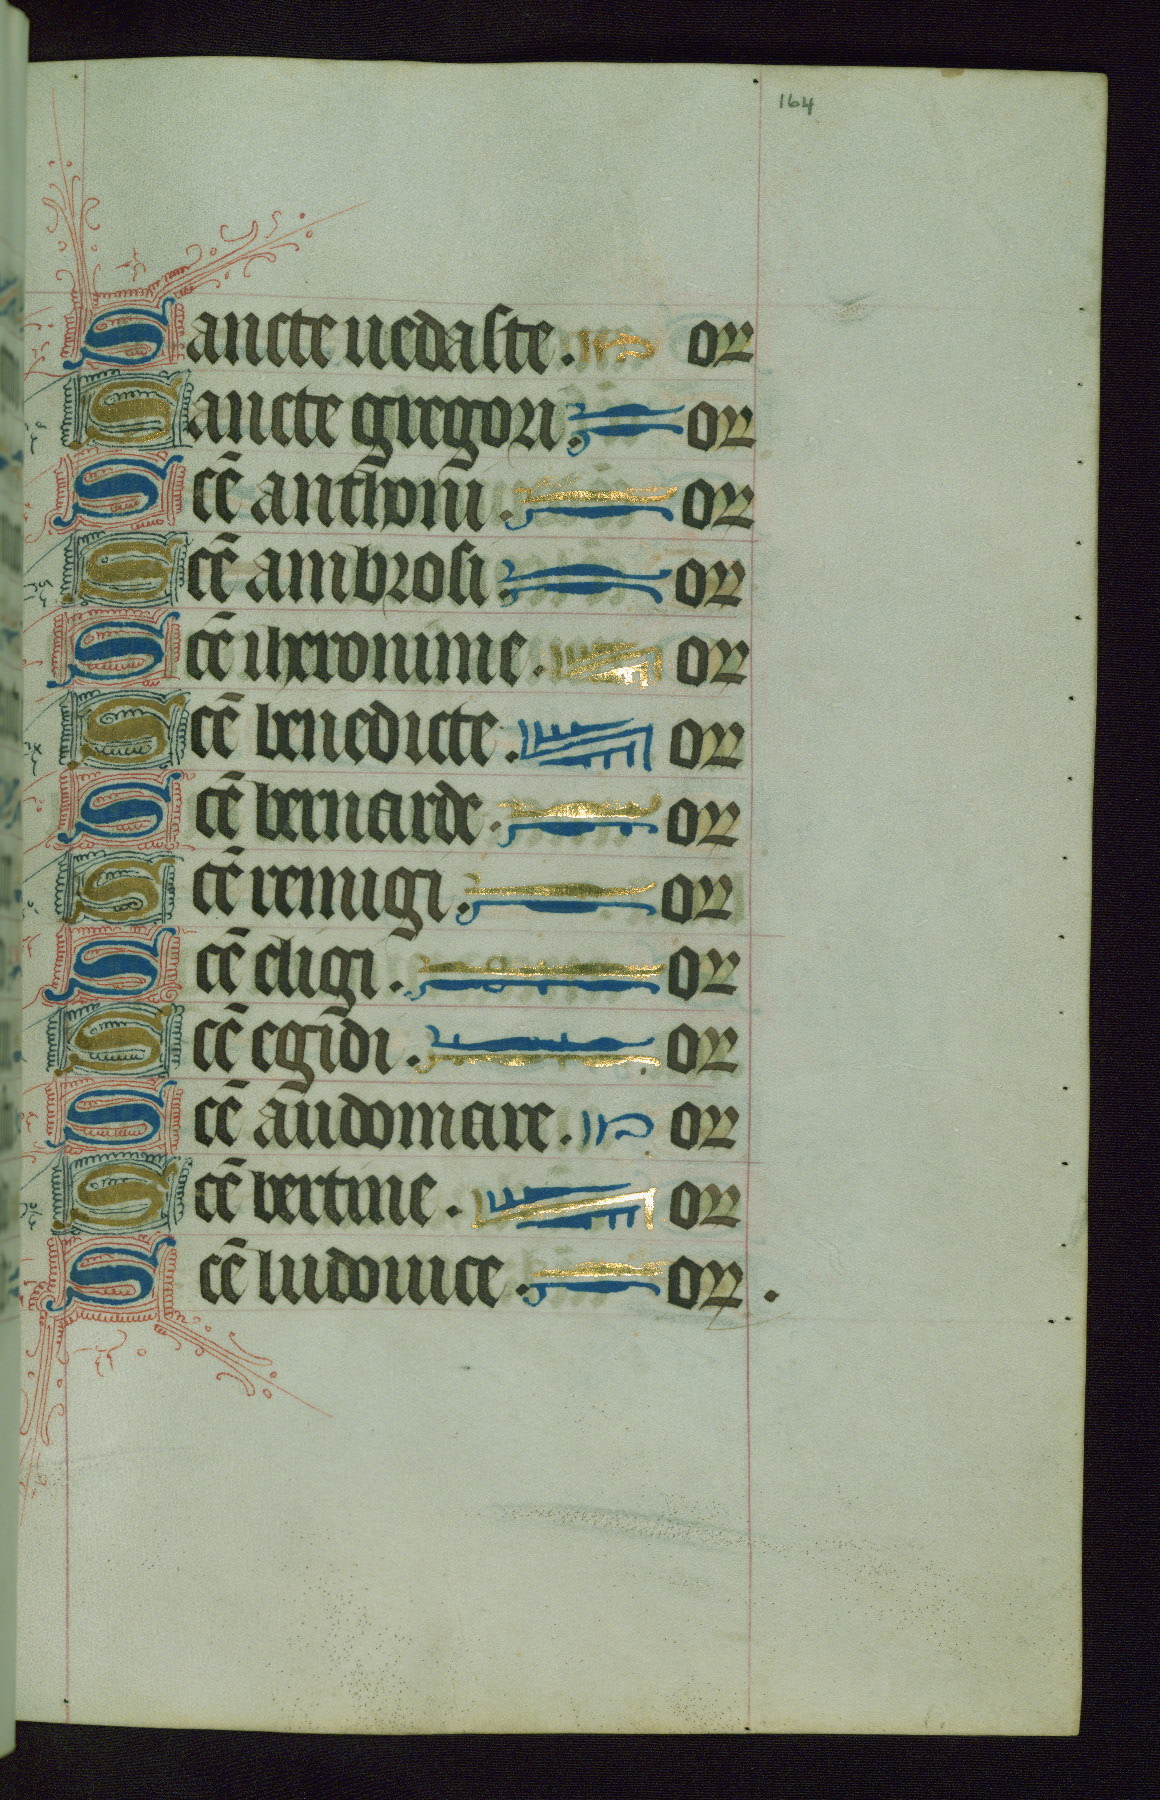 164
Sancte uedaste. or
Sancte gregori. or
Scē anthoni. or
Scē ambrosi. or
Scē iheronime. or
Scē benedicte. or
Scē bernarde. or
Scē remigi. or
Scē eligi. or
Scē egidi. or
Scē audomare. or
Scē bertine. or
Scē ludouice. or.